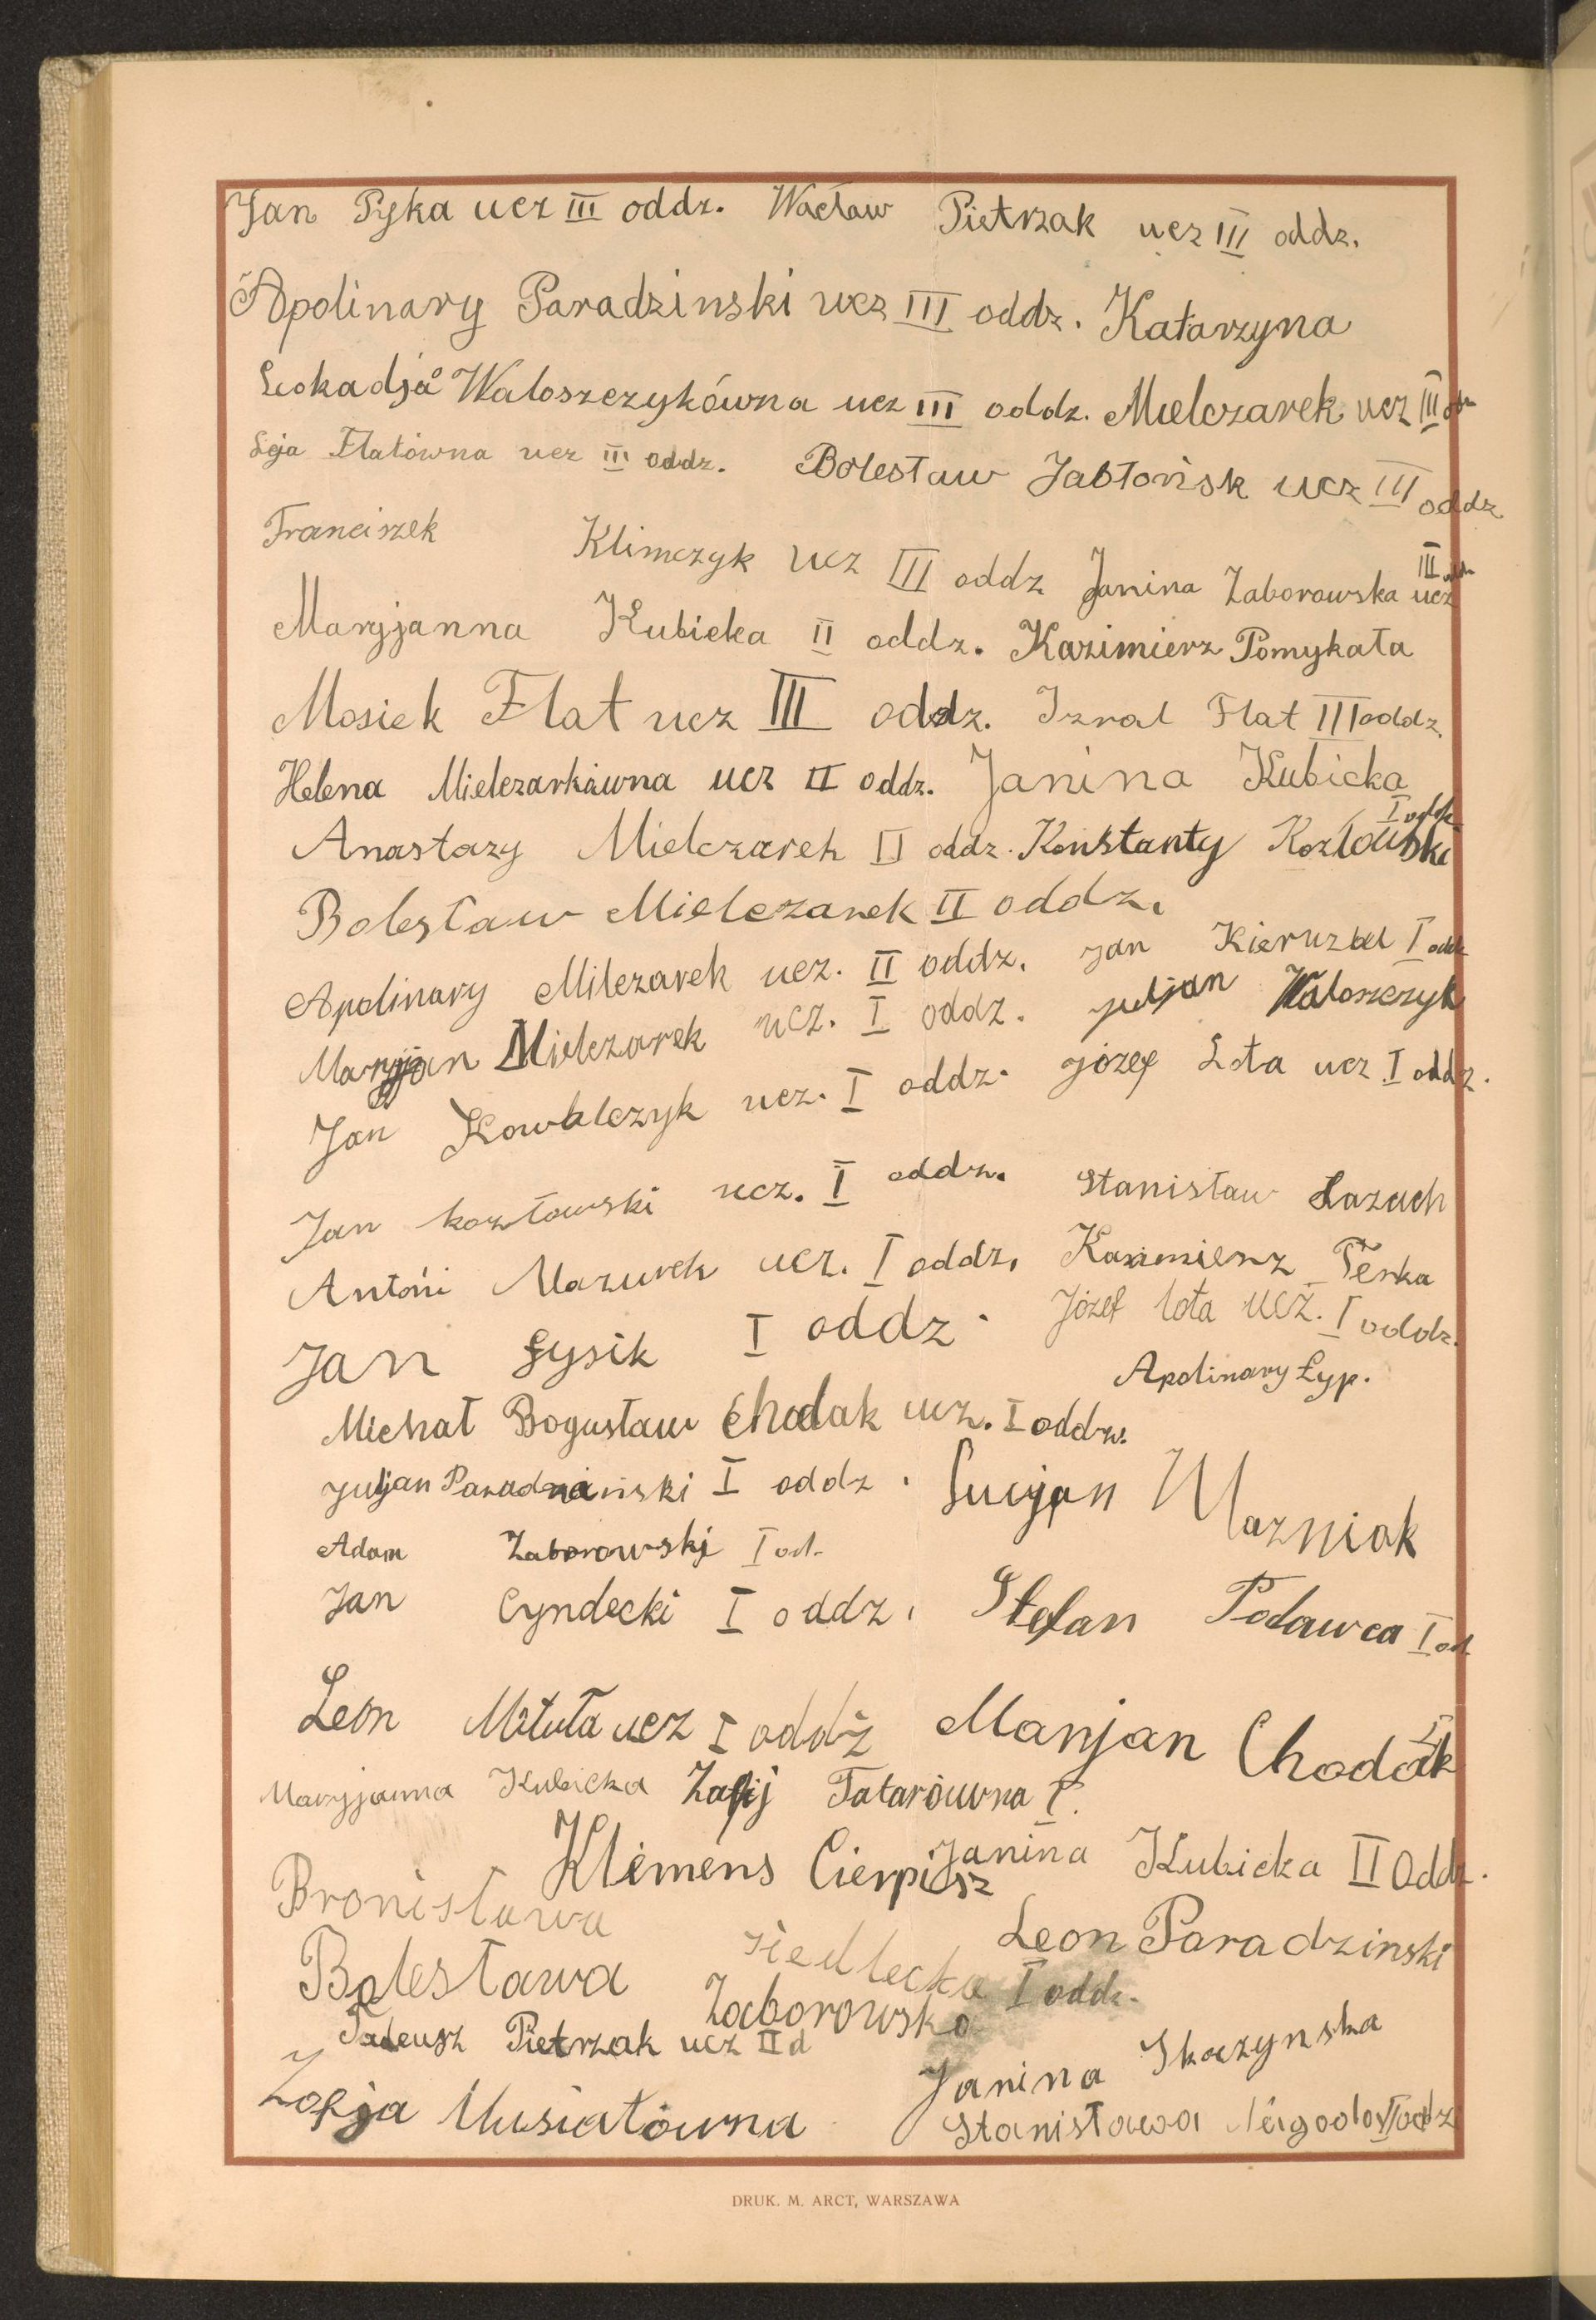 Jan Pyka ucz III oddz. Wacław Pietrzak ucz III oddz.
Apolinary Paradzinski ucz III oddz. Katarzyna
Leokadja Waloszczykówna ucz III oddz. Mielczarek ucz III odz
Leja Flatówna ucz III oddz. Bolesław Jabłońsk ucz III oddz
Franciszek Klimczyk ucz III oddz Janina Zaborowska ucz III
Maryjanna Kubicka II oddz. Kazimierz Pomykała
Mosiek Flat ucz III oddz. Izral Flat III oddz.
Helena Mielczarkówna ucz II oddz. Janina Kubicka
I oddz.
Anastazy Mielczarek II oddz. Konstanty Kozłowski
Bolesław Mielczarek II oddz.
Apolinary Milczarek ucz. II oddz. Jan Kieruzel I oddz
Maryjan Mielczarek ucz. I oddz. Juljan Waloszczyk
Jan Kowalczyk ucz. I oddz. Józef Lota ucz I oddz.
Jan Kozłowski ucz. I oddz. Stanisław Łazuch
Antoni Mazurek ucz. I oddz. Kazimierz Terka
Jan Łysik I oddz. Józef lota ucz. I oddz.
Apolinary Łyp.
Michał Bogusław Chodak ucz. I oddz.
Juljan Paradziński I oddz. Lucyjan Mazniak
Adam Zaborowski I od.
Jan Cyndecki I oddz. Stefan Podawca I od.
Leon Mituła ucz I oddz Marjan Chodak I
Maryjanna Kubicka Zofij Tatarówna I.
Klemens Cierpisz Janina Kubicka II Oddz.
Bronisława Siedlecka I oddz. Leon Paradzinski
Bolesława Zaborowska
Tadeusz Pietrzak ucz II d Janina Skaczynska
Zofja Musiałówna Stanisława
DRUK. M. ARCT, WARSZAWA